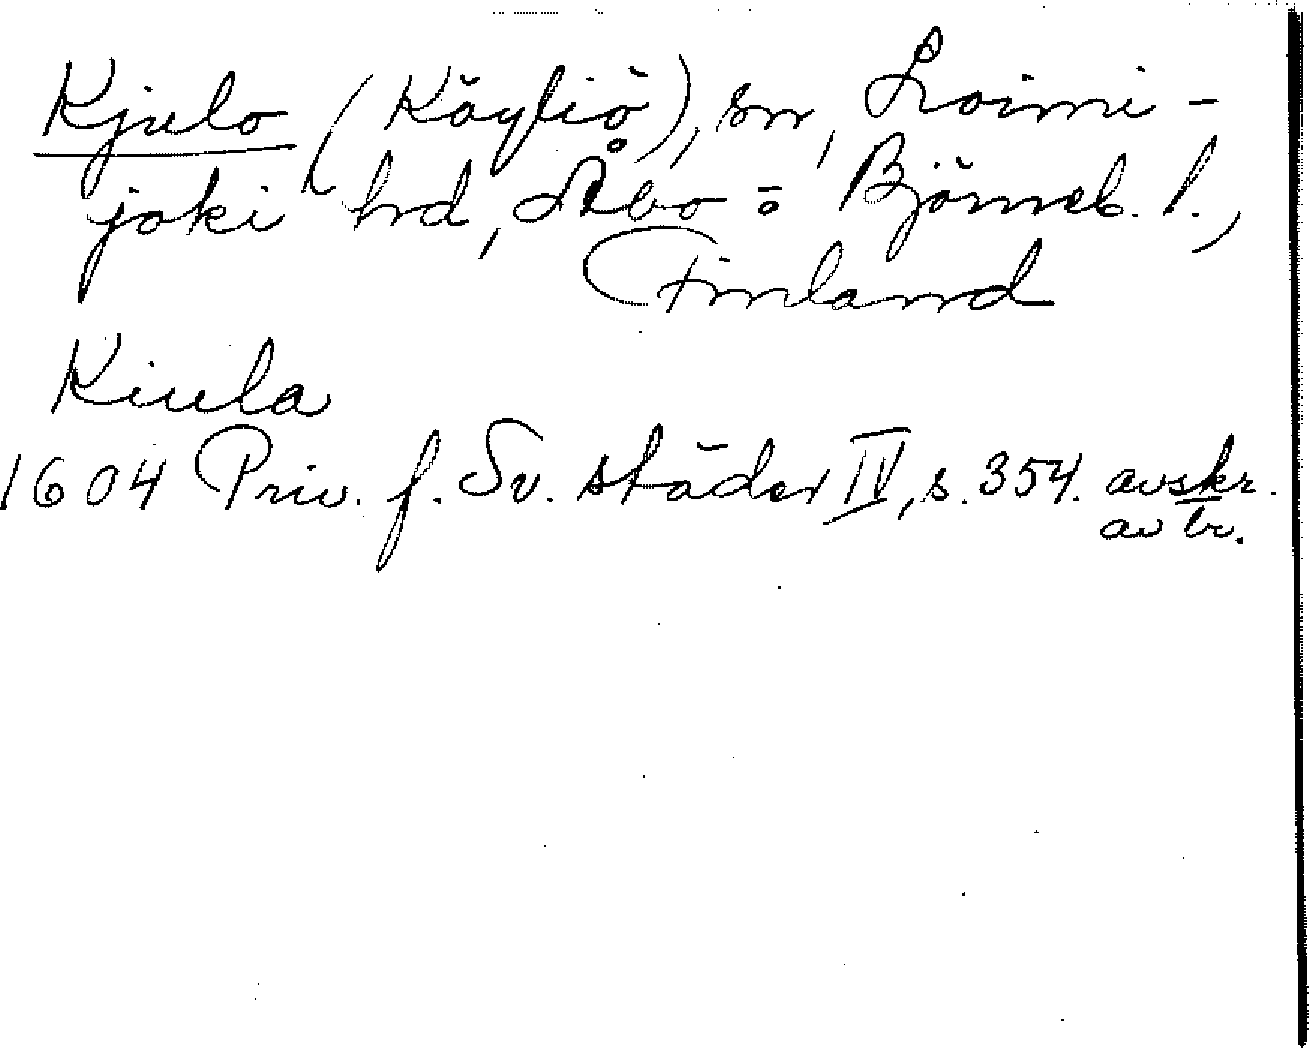 Kjulo (Köyliö), sn, Loimi-
joki hd, Åbo o Björneb. l.,
Finland
Kiula
1604 Priv. f. Sv. städer IV, s. 354. avskr.
av br.